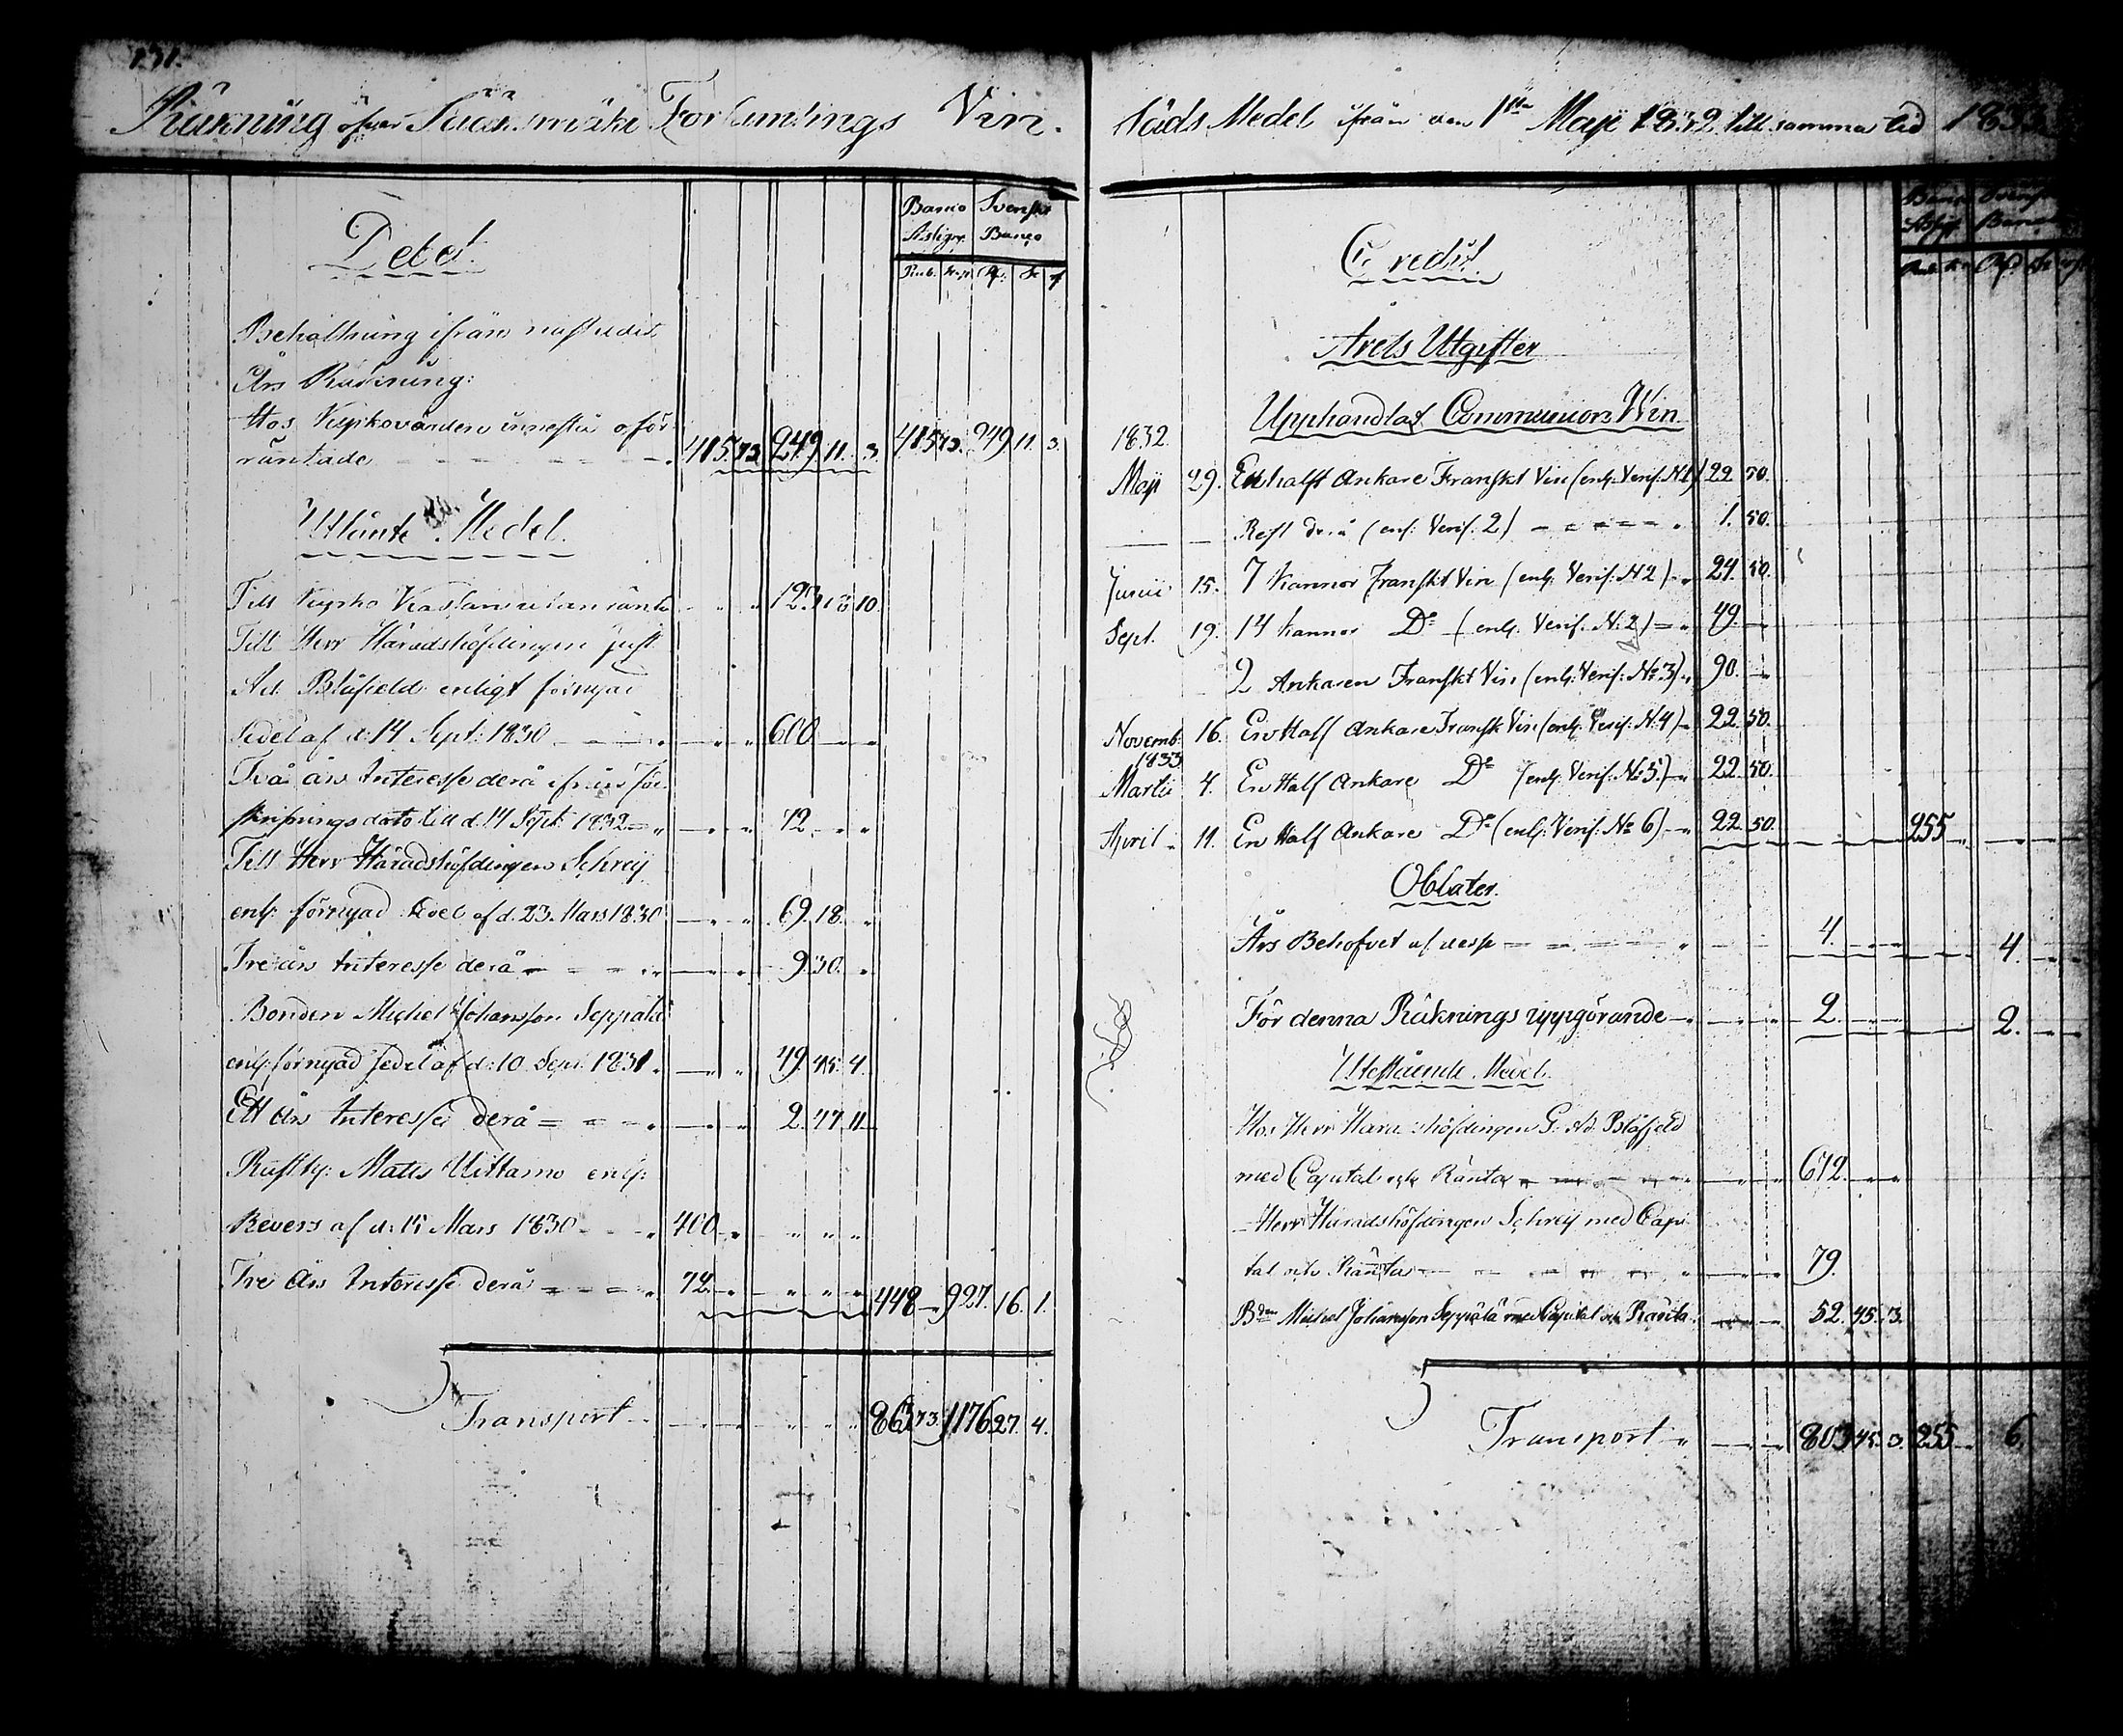 131.
Räkning öfver Sääxmäki Församlings Vin.
Debet.
Banco Assign. Svenskt Banco
Rub. Kop. Rd. Sk. rf
Behållning ifrån nästledit
Års Räkning:
Hos Kyrkovärden innestå oför
räntade 415.73. 249. 11. 3. 415 73. 249 11. 3.
Utlånte Medel.
Till Kyrko Kassan utan ränta 123 13 10.
Till Herr Häradshöfdingen Just
Ad. Blåfield enligt förnyad
Sedel af d: 14 Sept: 1830 600
Två års Interesse derå ifrån för
skrifnings dato till d. 14 Sept: 1832 72
Till Herr Häradshöfdingen Schreij
enl: förnyad Sedel af d. 23. Mars 1830 69. 18.
Tre års Interesse derå 9. 30.
Bonden Michel Johansson Seppälä
enl: förnyad Sedel af d: 10. Sept: 1831 49. 45. 4.
Ett års Interesse derå 2. 47 11
Rusth: Matts Uittamo enl:
Revers af d: 15 Mars 1830 400
Tre års Interesse derå 72 448 927. 16. 1.
Transport 863 73 1176 27. 4.
säds Medel ifrån den 1sta Maji 1832 till samma tid 1833
Credit.
Banco Assign. Svenskt Banco
Årets Utgifter
Upphandlat Communions Win
1832.
Maji 29. En half Ankare Franskt Vin (enl: Verif: N 1) 22. 50.
Rest derå (enl: Verif. 2) 1. 50.
Junii 15. 7 Kannor Franskt Vin (enl: Verif: N 2) 24. 50.
Sept. 19. 14 Kannor Do (enl: Verif. N: 2) 49.
2 Ankaren Franskt Vin (enl: Verif: No 3) 90.
Novemb: 16. En Half Ankare Franskt Vin (enl: Verif: N: 4) 22. 50.
1833
Martii 4. En Half Ankare Do (enl: Verif: No 5) 22. 50.
April 11. En Half Ankare Do (enl: Verif: No 6) 22. 50. 255
Oblater.
Års Behofvet af desse 4. 4.
För denna Räknings uppgörande 2. 2.
Utestående Medel.
Hos Herr Häradshöfdingen G: Ad. Blåfield
med Capital och Ränta 672.
Herr Häradshöfdingen Schreij med Capi
tal och Ränta 79.
Bden Michel Johansson Seppälä med Capital och Ränta 52. 45. 3.
Transport 803 45. 3. 255 6.